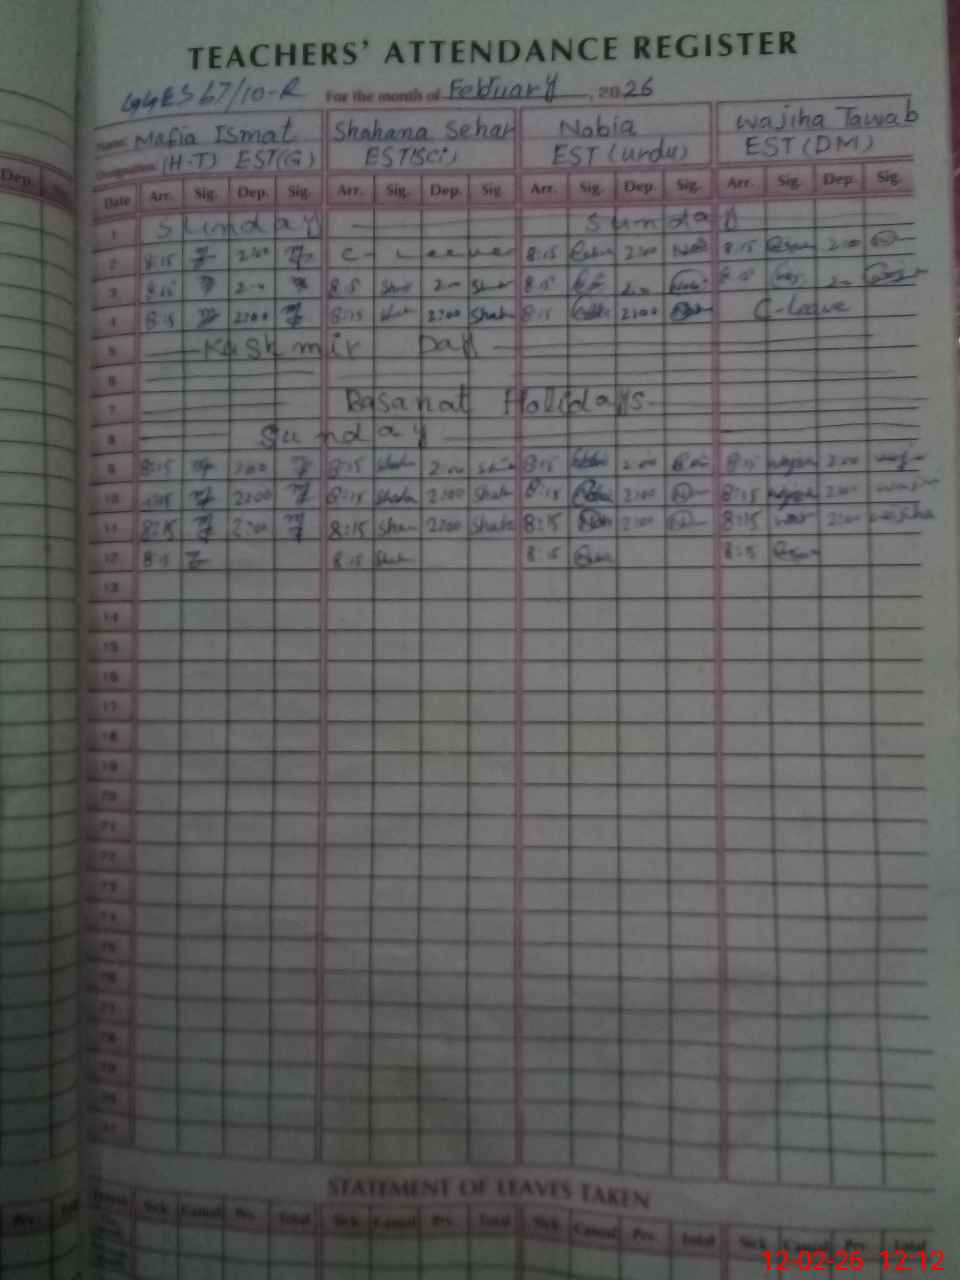 TEACHERS' ATTENDANCE REGISTER
GGES 67/10-R For the month of February, 2026
Name: Mafia Ismat Shahana Sehar Nobia Wajiha Tawab
Designation (H-T) EST(G) EST(Sci) EST (Urdu) EST (DM)
Date Arr. Sig. Dep. Sig. Arr. Sig. Dep. Sig. Arr. Sig. Dep. Sig. Arr. Sig. Dep. Sig.
1 Sunday Sunday
2 8:15 2:00 C- Leave 8:15 2:00 8:15 2:00
3 8:15 2:00 8:15 Shah 2:00 Shah 8:15 2:00 8:15 2:00
4 8:15 2:00 8:15 Shah 2:00 Shah 8:15 2:00 C-Leave
5 Kashmir Day
6
7 Basanat Holidays
8 Sunday
9 8:15 2:00 8:15 Shah 2:00 8:15 2:00 8:15 2:00
10 8:15 2:00 8:15 Shaha 2:00 Shah 8:15 2:00 8:15 2:00
11 8:15 2:00 8:15 Shah 2:00 Shah 8:15 2:00 8:15 2:00 wajiha
12 8:15 8:15 Shah 8:15 8:15
13
14
15
16
17
18
19
20
21
22
23
24
25
26
27
28
29
30
31
STATEMENT OF LEAVES TAKEN
Sick Casual Prv. Total Sick Casual Prv. Total Sick Casual Prv. Total Sick Casual Prv. Total
12-02-26 12:12